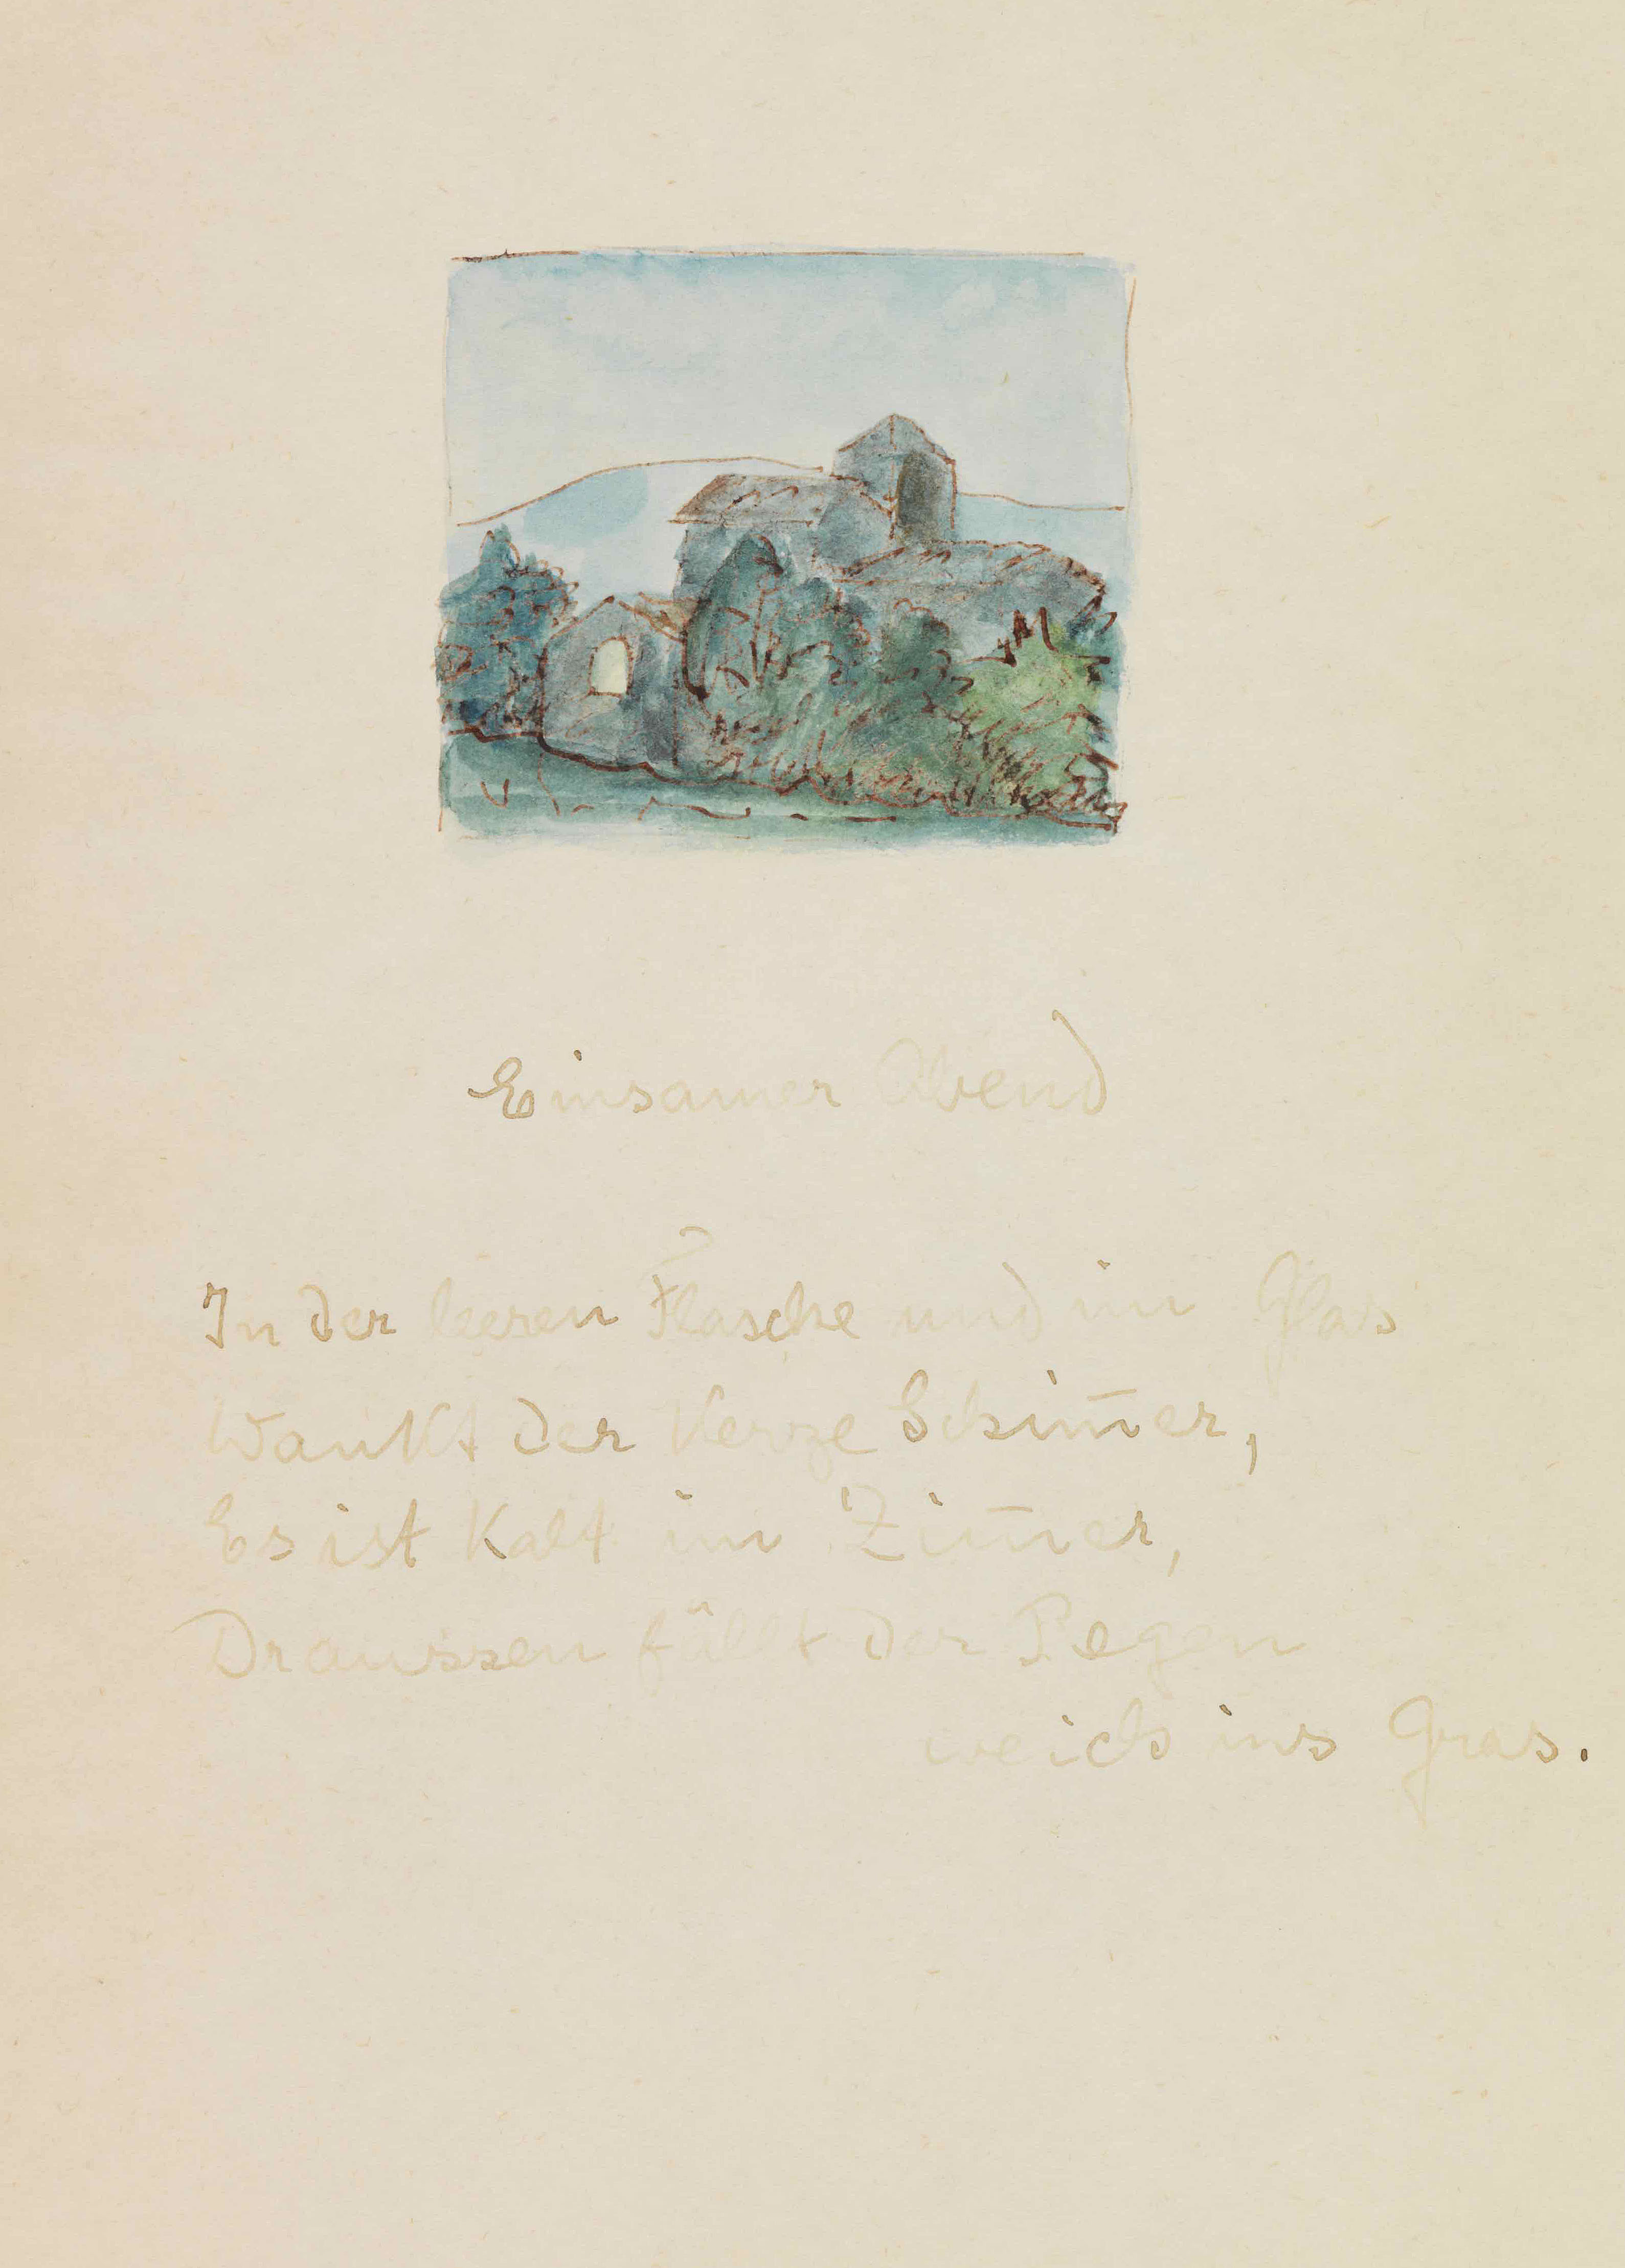 Einsamer Abend
In der leeren Flasche und im Glas
Wankt der Kerze Schim̅er,
Es ist Kalt im Zim̅er,
Draussen fällt der Regen
weich ins Gras.